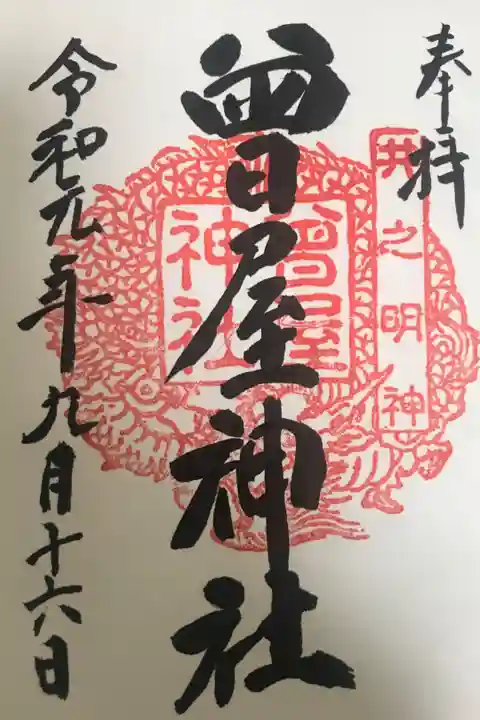 奉拝
井之明神
曽屋神社
曾屋
神社
令和元年九月十六日